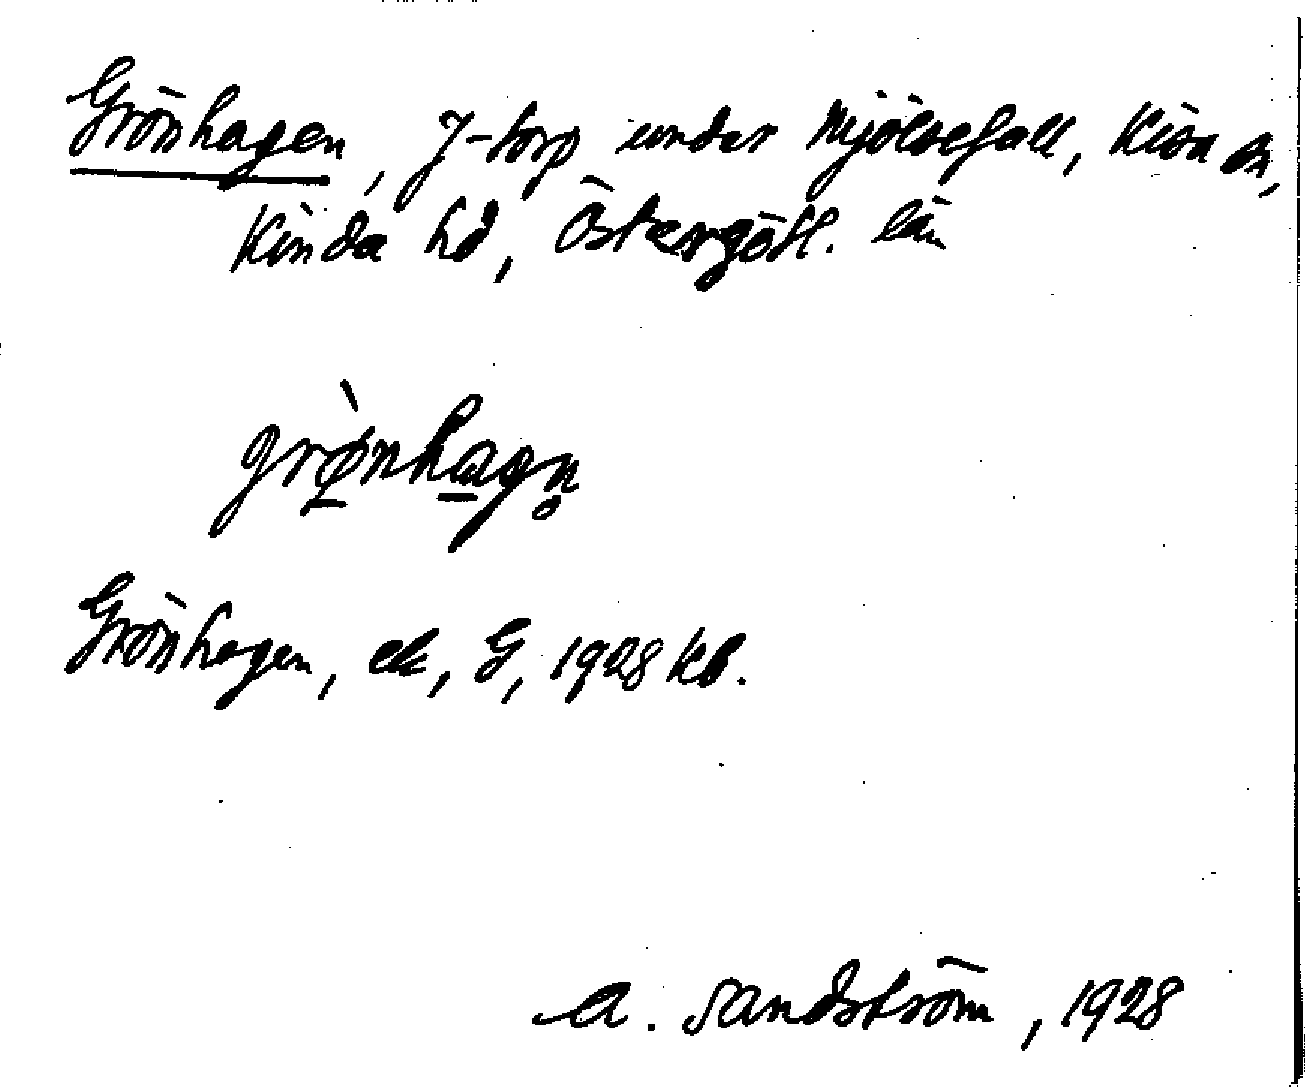 Grönhagen, J-torp under Mjölsefall, Kisa sn,
Kinda hd, Östergötl. län
grø̱̀nha̱gn̥
Grönhagen, ek, G, 1928 kb.
A. Sandström, 1928